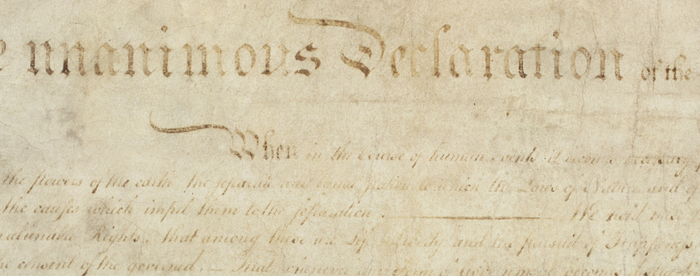 e unanimous Declaration of the
When in the Course of human events it becomes necessary
the powers of the earth, the separate and equal station to which the Laws of Nature and
the causes which impel them to the separation. We hold
Rights, that among these are Life, Liberty and the pursuit of Happiness
the consent of the governed, — That whenever any